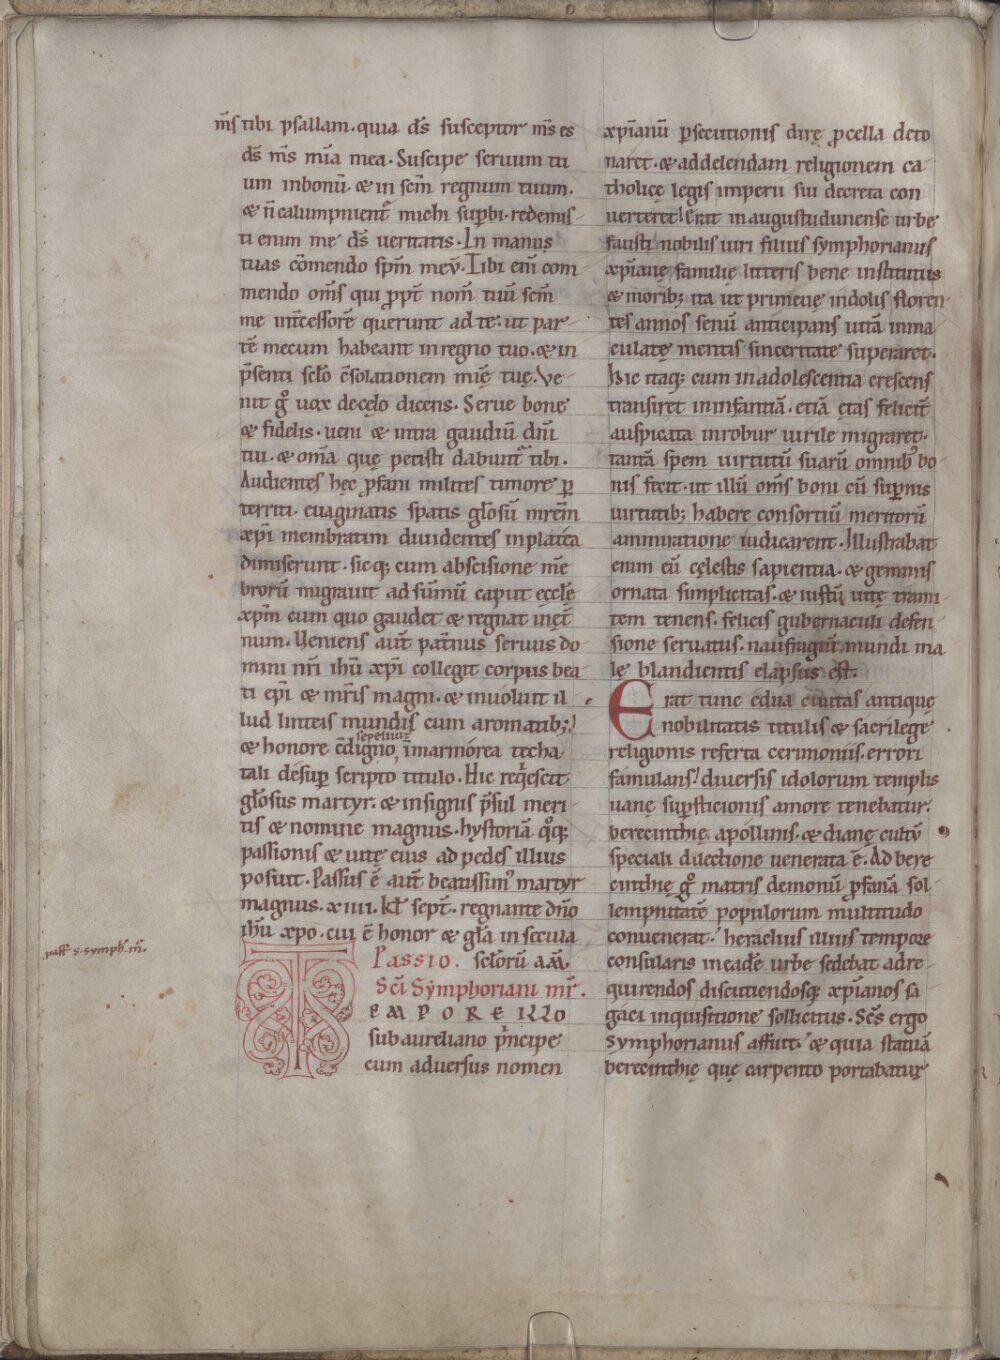 m̄s tibi psallam. quia d̄s susceptor m̄s es
d̄s m̄s mīa mea. Suscipe seruum tu
um inbonū. & in scm̄ regnum tuum.
& n̄ calumpnient᷑ michi supbi. redemis
ti enim me d̄s ueritatis. In manus
tuas cōmendo spm̄ meū. Tibi enī com
mendo om̄s qui ppt̄ nom̄ tuū scm̄
me int̄cessorē querunt ad te. ut par
tē mecum habeant in regno tuo. & in
p̄senti sclo c̄solationem mię tuę. Ve
nit g̊ uox de cęlo dicens. Serue bone
& fidelis. ueni & intra gaudiū dn̄i
tui. & om̄a quę petisti dabunt᷑ tibi.
Audientes hęc pfani milites timore p
territi. euaginatis spatis glosū mr̄em
xp̄i membratim diuidentes in platea
dimiserunt. sicq; cum abscisione mē
brorū migrauit ad sūmū caput eccłe
xpm̄ cum quo gaudet & regnat inęt̄
num. Veniens aut̄ pat̄nus seruus do
mini nr̄i ihū xp̄i collegit corpus bea
ti ep̄i & mr̄is magni. & inuoluit il
lud linteis mundis cum aromatib;
sepeliuit
& honore c̄digno, ī marmorea techa
tali desup scripto titulo. Hic req̇escit
glosus martyr. & insignis p̄sul meri
tis & nomine magnus. hystoriā q̊q;
passionis & uitę eius ad pedes illius
posuit. Passus ē aut̄ beatissim᾿ martyr
magnus. xiiii. kł sept̄. regnante dn̄o
ihū xpo. cui ē honor & gła in secula
Passio. scłorū am̄.
Sc̄i Symphoriani mr̄.
TEMPORE ILLO
sub aureliano p̄ncipe
cum aduersus nomen
pass̄ s. symph. m̄r.
xp̄ianū psecutionis dirę pcella deto
naret. & ad delendam religionem ca
tholicę legis imperii sui decreta con
uerteret! Erat in augustudunense urbe
fausti nobilis uiri filius symphorianus
xp̄ianę familię litteris bene institutus
& morib; ita ut primeuę indolis floren
tes annos senū anticipans uitā inma
culatę mentis sinceritate superaret.
Hic itaq; cum in adolescentia crescens
transiret in infantiā. etiā ętas felicit̄
auspicata in robur uirile migraret.
tantā spem uirtutū suarū omnib᾿ bo
nis fecit. ut illū om̄s boni cū supnis
uirtutib; habere consortiū meritorū
ammiratione iudicarent. Illustrabat
enim eū cęlestis sapientia. & geminis
ornata simplicitas. & iustū uitę trami
tem tenens. felicis gubernaculi defen
sione seruatus. naufragiū mundi ma
lę blandientis elapsus est.
Erat tunc edua ciuitas antiquę
nobilitatis titulis & sacrilegę
religionis referta cerimoniis. errori
famulans! diuersis idolorum templis
uanę supsticionis amore tenebatur.
berecinthię. apollinis. & dianę cultū
speciali dilectione uenerata ē. Ad bere
cinthię g̊ matris demonū pfanā sol
lempnitatē populorum multitudo
conuenerat. heraclius illius tempore
consularis in eadē urbe sedebat ad re
quirendos discutiendosq; xp̄ianos sa
gaci inquisitione sollicitus. Sc̄s ergo
symphorianus affuit. & quia statuā
berecinthię quę carpento portabatur